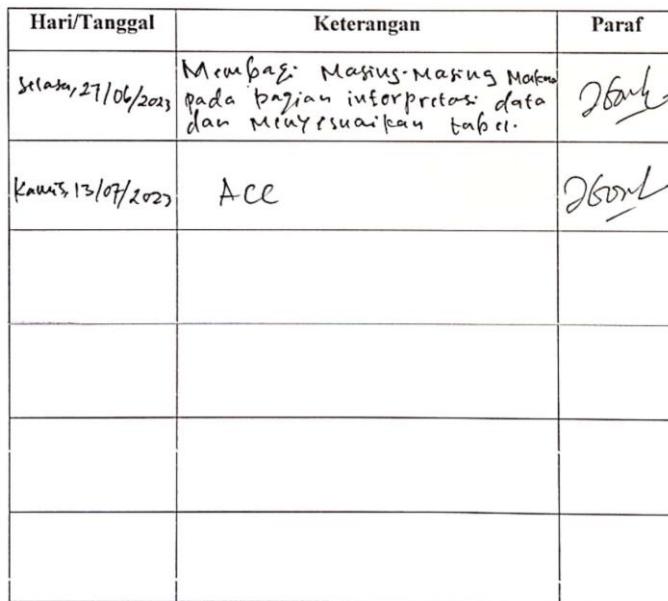 Hari/Tanggal Keterangan Paraf
Selasa, 27/06/2023
Membagi Masing-Masing Makna
pada bagian interpretasi data
dan Menyesuaikan tabel.
Kamis, 13/07/2023
ACC